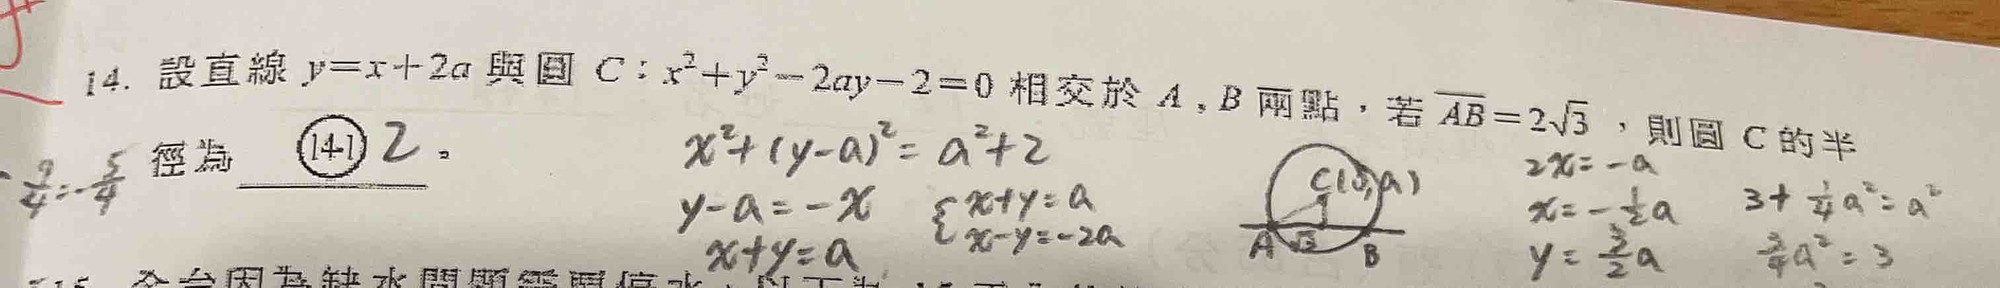 14. 設直線 y=x+2a 與圓 C：x²+y²-2ay-2=0 相交於 A，B 兩點，若 AB=2√3，則圓 C 的半
徑為 (14-1) 2。
x²+(y-a)²=a²+2
y-a=-x
x+y=a
{x+y=a
x-y=-2a
C(0,a)
A √3 B
2x=-a
x=-½a
y=3/2a
3+¼a²=a²
¾a²=3
=-5/4